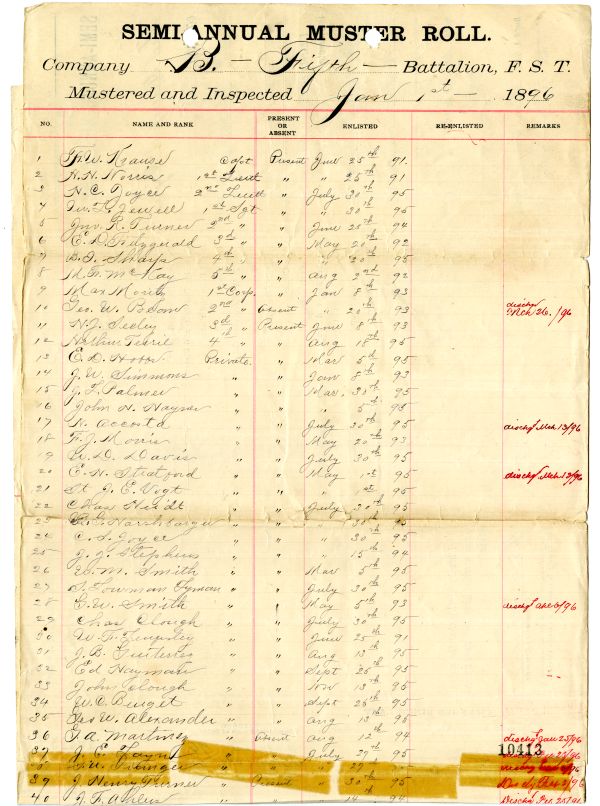 SEMI-ANNUAL MUSTER ROLL.
Company B. — Fifth — Battalion, F. S. T.
Mustered and Inspected Jan 1st — 1896
NO. NAME AND RANK PRESENT OR ABSENT ENLISTED RE-ENLISTED REMARKS
1 F. W. Krause Capt Present June 25th 91.
2 H. H. Norris 1st Lieut " " 25th 91
3 H. C. Joyce 2nd Lieut " July 30th 95
4 Jewell 1st Sgt " " 30th 95
5 Jno. R. Turner 2nd " " June 25th 94
6 E. D. Fitzgerald 3d " " May 20th 92
7 Sharps 4th " " " 20th 95
8 M. McKay 5th " " Aug 2nd 92
9 Max Moritz 1st Corp. " Jan 8th 93
10 Geo. W. 2nd " Absent " 20th 93 dischgd Mch 26./96
11 H. J. Seeley 3d " Present June 8th 93
12 Arthur 4th " " Aug 18th 95
13 E. D. Private. " Mar 5th 95
14 J. W. Simmons " " Jan 8th 93
15 J. L. Palmer " " Mar. 95
16 John H. Hayner " " " 5th 95
17 N. Accosta " " July 30th 95 dischgd Mch 13/96
18 F. J. Morris " " May 20th 93
19 W. D. Davis " " July 30th 95
20 E. N. Stratford " " May 1st 95 dischgd Mch 13/96
21 St. J. E. Vogt " " " 1st 95
22 Chas Heidt " " July 30th 95
23 Harshbarger " " " 30th 95
24 C. S. Joyce " " " 30th 95
25 J. J. Stephens " " " 15th 94
26 W. M. Smith " " Mar 5th 95
27 Bowman Lyman " " July 30th 95
28 G. W. Smith " " May 5th 93 dischgd
29 Chas Clough " " July 30th 95
30 W. F. " " June 25th 91
31 J. B. Gutierres " " Aug 13th 95
32 Ed Hayman " " Sept 25th 95
33 John Clough " " Nov 13th 95
34 W. C. Burget " " Sept 25th 95
35 Geo W. Alexander " " Aug 13th 95
36 F. A. Martinez " Absent Aug 12th 94 dischgd Jan 25/96
10413
37 J. E. " " July 29th 95
38 " " 29th
39 J. Henry Turner " Present " 30th 95
40 J. F. " " " 14th 94 Dischgd